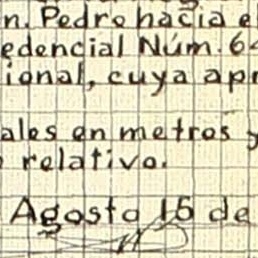 n. Pedro hacia el
edencial Núm. 64
ional, cuya apr
ales en metros y
o relativo.
Agosto 15 de